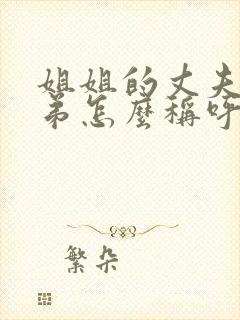 姐姐的丈夫
弟怎麼稱呼
繁朵